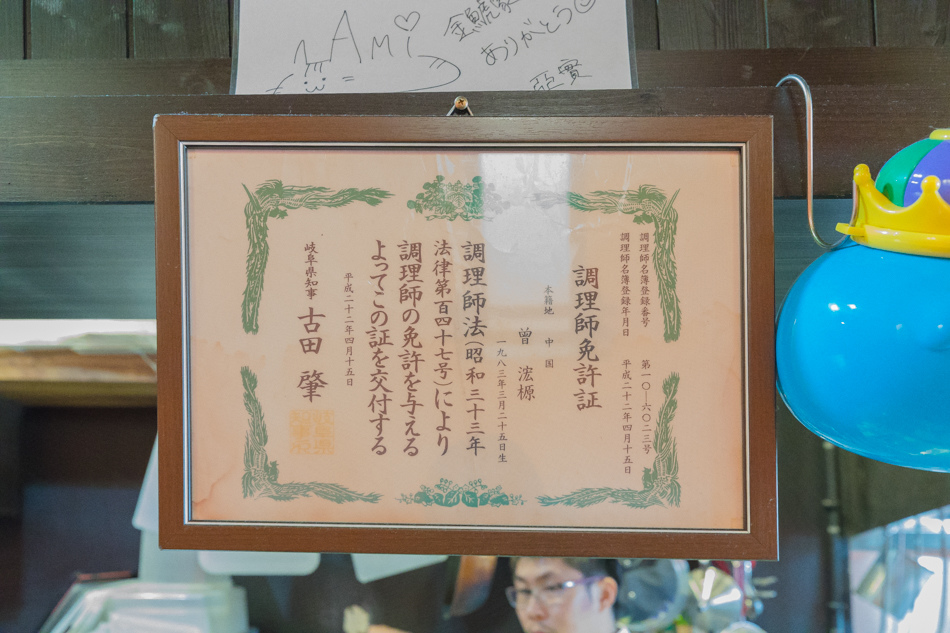 NAMi♡
ありがとう
亞實
調理師名簿登録番号 第一〇―六〇二三号
調理師名簿登録年月日 平成二十二年四月十五日
調理師免許証
本籍地 中国
曽 浤榞
一九八三年三月二十五日生
調理師法(昭和三十三年
法律第百四十七号)により
調理師の免許を与える
よってこの証を交付する
平成二十二年四月十五日
岐阜県知事 古田 肇